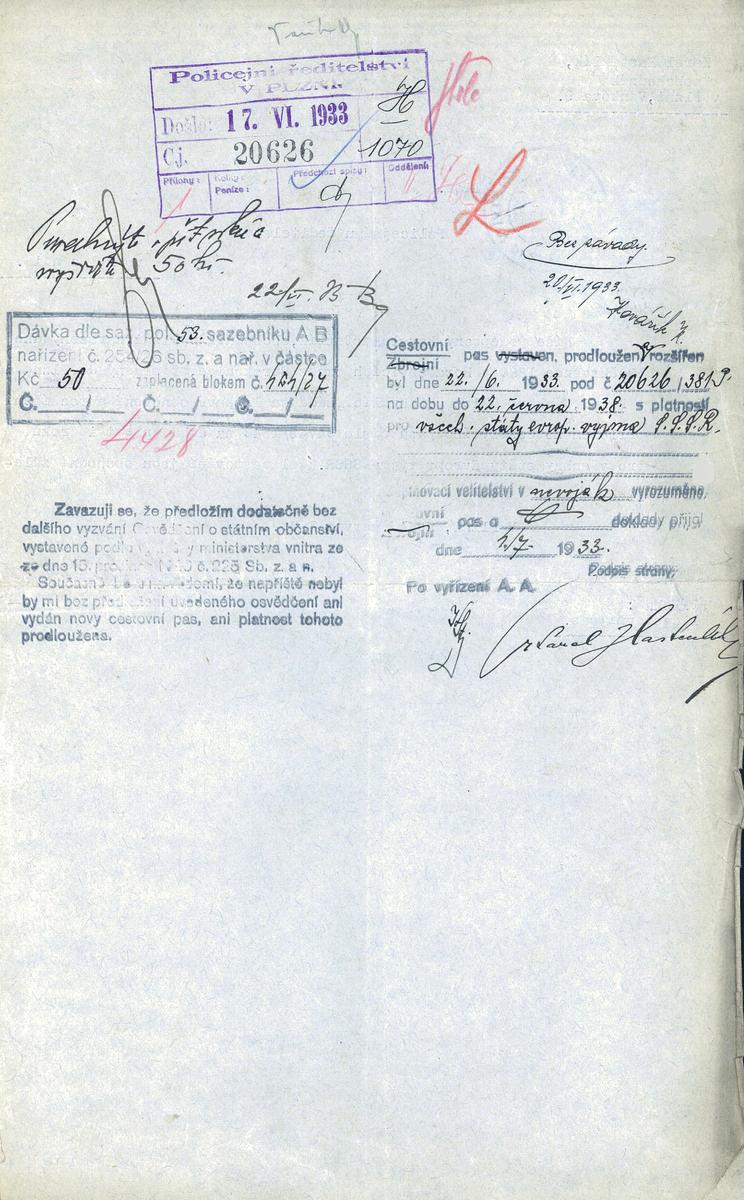 Policejní ředitelství
V PLZNI.
Došlo: 17. VI. 1933
Čj. 20626 1070
Přílohy: Kolky: Peníze: Předchozí spisy: Oddělení:
1
L
50 Kč.
22/VI.
Bez závady.
20/VI.1933.
Kovářík
Dávka dle saz. pol. 53. sazebníku A B
nařízení č. 254/26 sb. z. a nař. v částce
Kč 50 zaplacená blokem č.
Č. / Č. / Č. /
4428
Cestovní
Zbrojní pas vystaven, prodloužen, rozšířen
byl dne 22./6. 1933. pod č 20626/381P.
na dobu do 22. června 1938. s platností
pro všech. státy evrop. vyjma S.S.S.R.
velitelství v nevoják vyrozuměno.
pas a doklady přijal
dne 4/7. 1933.
Podpis strany:
Po vyřízení A. A.
Karel
Zavazuji se, že předložím dodatečně bez
dalšího vyzvání Osvědčení o státním občanství,
vystavené podle ministerstva vnitra ze
ze dne 15. č. 225 Sb. z. a n.
že napříště nebyl
by mi bez předložení uvedeného osvědčení ani
vydán nový cestovní pas, ani platnost tohoto
prodloužena.